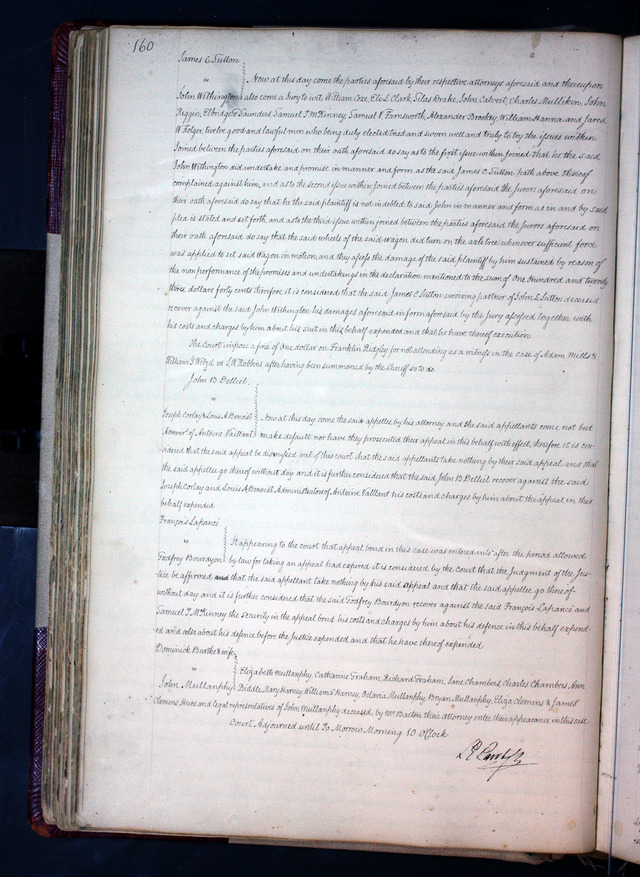 160
James C Sutton
vs
Now at this day come the parties aforesaid by their respective attorneys aforesaid and thereupon
John Withington also come a Jury to wit, William Coze, Eli L Clark, Silas Drake, John Calvert, Charles Mullikin, John
Reggen, Elbridge Saunders, Samuel T. McKinney, Samuel V. Farnsworth, Alexander Brookey, William Hanna, and Jared
W Folger, twelve good and lawful men who being duly elected tried and sworn well and truly to try the issues within
Joined between the parties aforesaid on their oath aforesaid do say as to the first issue within joined that he the said
John Withington did undertake and promise in manner and form as the said James C. Sutton hath above thereof
complained against him, and as to the second issue within Joined between the parties aforesaid the Jurors aforesaid on
their oath aforesaid do say that he the said plaintiff is not indebted to said John in manner and form as in and by said
plea is stated and set forth, and as to the third issue within joined between the parties aforesaid the Jurors aforesaid on
their oath aforesaid do say that the said wheels of the said wagon did turn on the axletrees whenever sufficient force
was applied to set said wagon in motion, and they assess the damage of the said plaintiff by him sustained by reason of
the non performance of the promises and undertakings in the declaration mentioned to the sum of One Hundred and twenty
three dollars forty cents therefore it is considered that the said James C Sutton surviving partner of John L Sutton deceased
recover against the said John Withington his damages aforesaid in form aforesaid by the Jury assessed together with
his costs and charges by him about his suit in this behalf expended and that he have thereof execution
The Court impose a fine of one dollar on Franklin Ridgley for not attending as a witness in the case of Adam Mills &
William T. vs. S W Robbins after having been summoned by the sheriff so to do
John B Delliel.
vs
Joseph Corlay & Louis A Benoist Now at this day come the said appellee by his attorney and the said appellants come not but
Admors of Antoine Vaillant make default nor have they prosecuted their appeal in this behalf with effect, therefore it is con-
sidered that the said appeal be dismissed out of this court that the said appellants take nothing by their said appeal and that
the said appellee go thereof without day and it is further considered that the said John B Delliel recover against the said
Joseph Corlay and Louis A Benoist Administrators of Antoine Vaillant his costs and charges by him about the appeal in this
behalf expended
François Lafrance
vs
It appearing to the court that appeal bond in this case was entered into after the period allowed
Godfrey Bourdyon by law for taking an appeal had expired it is considered by the Court that the Judgment of the Jus-
tice be affirmed and that the said appellant take nothing by his said appeal and that the said appellee go thereof
without day and it is further considered that the said Godfrey Bourdyon recover against the said François Lafrance and
Samuel T. McKinney the security in the appeal bond his costs and charges by him about his defence in this behalf expend-
ed and also about his defence before the Justice expended and that he have thereof expended
Dominick Burthe & wife
vs
Elizabeth Mullanphy, Catharine Graham, Richard Graham, Jane Chambers, Charles Chambers, Ann
John Mullanphy Biddle, Mary Harney, William S Harney, Octavia Mullanphy, Bryan Mullanphy, Eliza Clemens & James
Clemens, heirs and legal representatives of John Mullanphy deceased, by Mr Barton their attorney enter their appearance in this case
Court Adjourned until To Morrow Morning 10 O'Clock